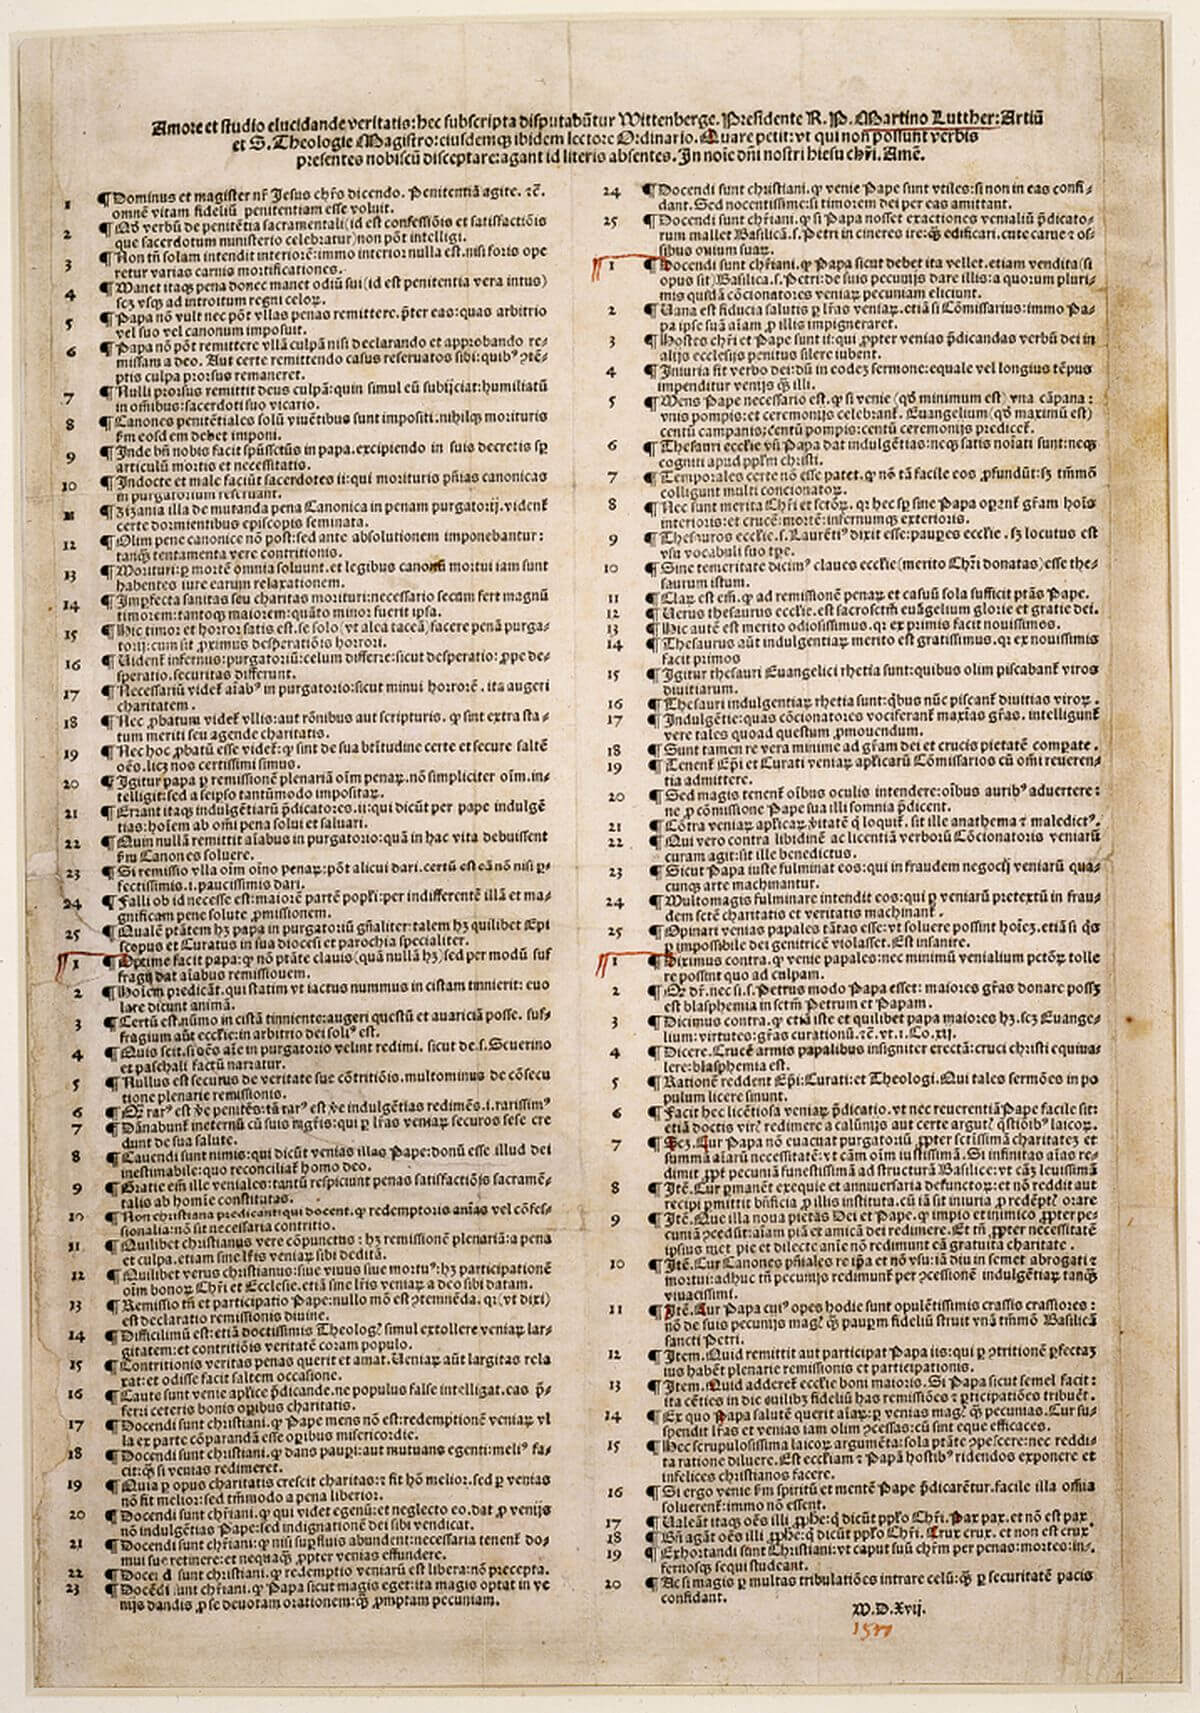 Amore et studio elucidande veritatis: hec subscripta disputabũtur Wittenberge. Presidente R. P. Martino Lutther: Artiũ
et S. Theologie Magistro: eiusdemqʒ ibidem lectore Ordinario. Quare petit: vt qui non possunt verbis
presentes nobiscũ disceptare: agant id literis absentes. In noĩe dñi nostri hiesu chr̃i. Amẽ.
1 ¶ Dominus et magister nr̃ Jesus chr̃s dicendo. Penitentiã agite. ⁊c̃.
omnẽ vitam fideliũ penitentiam esse voluit.
2 ¶ Qđ verbũ de penitẽtia sacramentali (id est confessiõis et satisfactiõis
que sacerdotum ministerio celebratur) non põt intelligi.
3 ¶ Non tñ solam intendit interiorẽ: immo interior nulla est. nisi foris ope
retur varias carnis mortificationes.
4 ¶ Manet itaqʒ pena donec manet odiũ sui (id est penitentia vera intus)
scʒ vsqʒ ad introitum regni celoꝝ.
5 ¶ Papa nõ vult nec põt vllas penas remittere. p̃ter eas: quas arbitrio
vel suo vel canonum imposuit.
6 ¶ Papa nõ põt remittere vllã culpã nisi declarando et approbando re-
missam a deo. Aut certe remittendo casus reseruatos sibi: quibꝰ ꝯtẽ-
ptis culpa prorsus remaneret.
7 ¶ Nulli prorsus remittit deus culpã: quin simul eũ subijciat: humiliatũ
in om̃ibus: sacerdoti suo vicario.
8 ¶ Canones penitẽtiales solũ viuẽtibus sunt impositi: nihilqʒ morituris
ẜm eosdem debet imponi.
9 ¶ Inde bñ nobis facit spũssctũs in papa. excipiendo in suis decretis sꝑ
articulũ mortis et necessitatis.
10 ¶ Indocte et male faciũt sacerdotes ii: qui morituris pñias canonicas
in purgatorium reseruant.
11 ¶ Zizania illa de mutanda pena Canonica in penam purgatorij. videnẽ
certe dormientibus episcopis seminata.
12 ¶ Olim pene canonice nõ post: sed ante absolutionem imponebantur:
tanqʒ tentamenta vere contritionis.
13 ¶ Morituri: ꝑ mortẽ omnia soluunt. et legibus canonũ mortui iam sunt
habentes iure earum relaxationem.
14 ¶ Imꝑfecta sanitas seu charitas morituri: necessario secum fert magnũ
timorem: tantoqʒ maiorem: quãto minor fuerit ipsa.
15 ¶ Hic timor et horror satis est. se solo (vt alea taceã) facere penã purga-
torij: cum sit ꝓximus desperatiõis horrori.
16 ¶ Videnẽ infernus: purgatoriũ: celum differre: sicut desperatio: ꝓpe de-
speratio. securitas differunt.
17 ¶ Necessariũ videẽ aĩabꝰ in purgatorio: sicut minui horrorẽ. ita augeri
charitatem.
18 ¶ Nec ꝓbatum videẽ vllis: aut rõnibus aut scripturis. ꝙ sint extra sta-
tum meriti seu agende charitatis.
19 ¶ Nec hoc ꝓbatũ esse videẽ: ꝙ sint de sua btĩtudine certe et secure saltẽ
oẽs. licʒ nos certissimi simus.
20 ¶ Igitur papa ꝑ remissionẽ plenariã oĩm penaꝝ. nõ simpliciter oĩm. in-
telligit: sed a seipso tantũmodo impositaꝝ.
21 ¶ Errant itaqʒ indulgẽtiarũ p̃dicatores. ii: qui dicũt per pape indulgẽ
tias: hoĩem ab om̃i pena solui et saluari.
22 ¶ Quin nullã remittit aĩabus in purgatorio: quã in hac vita debuissent
ẜm Canones soluere.
23 ¶ Si remissio vlla oĩm oĩno penaꝝ: põt alicui dari. certũ est eã nõ nisi ꝑ-
fectissimis. i. paucissimis dari.
24 ¶ Falli ob id necesse est: maiorẽ partẽ popl̃i: per indifferentẽ illã et ma-
gnificam pene solute ꝓmissionem.
25 ¶ Qualẽ ptãtem hʒ papa in purgatoriũ gñaliter: talem hʒ quilibet Epi
scopus et Curatus in sua diocesi et parochia specialiter.
1 ¶ Optime facit papa: ꝙ nõ ptãte clauis (quã nullã hʒ) sed per modũ suf
fragij dat aĩabus remissionem.
2 ¶ Hoĩem predicãt. qui statim vt iactus nummus in cistam tinnierit: euo
lare dicunt animã.
3 ¶ Certũ est. nũmo in cistã tinniente: augeri questũ et auariciã posse. suf-
fragium aũt eccl̃ie: in arbitrio dei soliꝰ est.
4 ¶ Quis scit. si oẽs aĩe in purgatorio velint redimi. sicut de. s. Seuerino
et paschali factũ narratur.
5 ¶ Nullus est securus de veritate sue cõtritiõis. multominus de cõsecu
tione plenarie remissionis.
6 ¶ Qȝ rarꝰ est ṽe penitẽs: tã rarꝰ est ṽe indulgẽtias redimẽs. i. rarissimꝰ
7 ¶ Dãnabunẽ ineternũ cũ suis mgr̃is: qui ꝑ lr̃as veniaꝝ securos sese cre
dunt de sua salute.
8 ¶ Cauendi sunt nimis: qui dicũt venias illas Pape: donũ esse illud dei
inestimabile: quo reconciliaẽ homo deo.
9 ¶ Gratie em̃ ille veniales: tantũ respiciunt penas satisfactiõis sacramẽ-
talis ab homĩe constitutas.
10 ¶ Non christiana predicant: qui docent. ꝙ redemptoris aĩas vel cõfes-
sionalia: nõ sit necessaria contritio.
11 ¶ Quilibet christianus vere cõpunctus: hʒ remissionẽ plenariã: a pena
et culpa. etiam sine lr̃is veniaꝝ sibi debitã.
12 ¶ Quilibet verus christianus: siue viuus siue mortuꝰ: hʒ participationẽ
oĩm bonoꝝ Chr̃i et Ecclesie. etiã sine lr̃is veniaꝝ a deo sibi datam.
13 ¶ Remissio tñ et participatio Pape: nullo mõ est ꝯtemnẽda. qꝛ (vt dixi)
est declaratio remissionis diuine.
14 ¶ Difficilimũ est: etiã doctissimis Theologꝭ simul extollere veniaꝝ lar-
gitatem: et contritiõis veritatẽ coram populo.
15 ¶ Contritionis veritas penas querit et amat. Ueniaꝝ aũt largitas rela
xat: et odisse facit saltem occasione.
16 ¶ Caute sunt venie apl̃ice p̃dicande. ne populus false intelligat. eas p̃-
ferri ceteris bonis oꝑibus charitatis.
17 ¶ Docendi sunt christiani. ꝙ Pape mens nõ est: redemptionẽ veniaꝝ vl
la ex parte cõparandã esse oꝑibus misericordie.
18 ¶ Docendi sunt christiani. ꝙ dans pauꝑi: aut mutuans egenti: meliꝰ fa-
cit: qʒ si venias redimeret.
19 ¶ Quia ꝑ opus charitatis crescit charitas: ⁊ fit hõ melior. sed ꝑ venias
nõ fit melior: sed tm̃modo a pena liberior.
20 ¶ Docendi sunt chr̃iani. ꝙ qui videt egenũ: et neglecto eo. dat ꝓ venijs
nõ indulgẽtias Pape: sed indignationẽ dei sibi vendicat.
21 ¶ Docendi sunt chr̃iani: ꝙ nisi suꝑfluis abundent: necessaria tenenẽ do-
mui sue retinere: et nequaqʒ ꝓpter venias effundere.
22 ¶ Docẽdi sunt christiani. ꝙ redemptio veniarũ est libera: nõ precepta.
23 ¶ Docẽdi sunt chr̃iani. ꝙ Papa sicut magis eget: ita magis optat in ve
nijs dandis ꝓ se deuotam orationem: qʒ ꝓmptam pecuniam.
24 ¶ Docendi sunt christiani. ꝙ venie Pape sunt vtiles: si non in eas confi-
dant. Sed nocentissime: si timorem dei per eas amittant.
25 ¶ Docendi sunt chr̃iani. ꝙ si Papa nosset exactiones venialiũ p̃dicato-
rum mallet Basilicã. s. Petri in cineres ire: qʒ edificari. cute carne ⁊ os-
sibus ouium suaꝝ.
1 ¶ Docendi sunt chr̃iani. ꝙ Papa sicut debet ita vellet. etiam vendita (si
opus sit) Basilica. s. Petri: de suis pecunijs dare illis: a quorum pluri-
mis quidã cõcionatores veniaꝝ pecuniam eliciunt.
2 ¶ Uana est fiducia salutis ꝑ lr̃as veniaꝝ. etiã si Cõmissarius: immo Pa-
pa ipse suã aĩam ꝓ illis impigneraret.
3 ¶ Hostes chr̃i et Pape sunt ii: qui ꝓpter venias p̃dicandas verbũ dei in
alijs ecclesijs penitus silere iubent.
4 ¶ Iniuria fit verbo dei: dũ in eodeʒ sermone: equale vel longius tẽpus
impenditur venijs qʒ illi.
5 ¶ Mens Pape necessario est. ꝙ si venie (qđ minimum est) vna cãpana:
vnis pompis: et ceremonijs celebranẽ. Euangelium (qđ maximũ est)
centũ campanis: centũ pompis: centũ ceremonijs predicẽ.
6 ¶ Thesauri eccl̃ie vñ Papa dat indulgẽtias: neqʒ satis noĩati sunt: neqʒ
cogniti apud ppl̃m christi.
7 ¶ Temporales certe nõ esse patet. ꝙ nõ tã facile eos ꝓfundũt: sʒ tm̃mõ
colligunt multi concionatoꝝ.
8 ¶ Nec sunt merita Chr̃i et sctõꝝ. qꝛ hec sꝑ sine Papa oꝑanẽ gr̃am hoĩs
interioris: et crucẽ: mortẽ: infernumqʒ exterioris.
9 ¶ Thesauros eccl̃ie. s. Laurẽtiꝰ dixit esse: pauꝑes eccl̃ie. sʒ locutus est
vsu vocabuli suo tꝑe.
10 ¶ Sine temeritate dicimꝰ claues eccl̃ie (merito Chr̃i donatas) esse the-
saurum istum.
11 ¶ Claꝝ est em̃. ꝙ ad remissionẽ penaꝝ et casuũ sola sufficit ptãs Pape.
12 ¶ Uerus thesaurus eccl̃ie. est sacrosctm̃ euãgelium glorie et gratie dei.
13 ¶ Hic autẽ est merito odiosissimus. qꝛ ex primis facit nouissimos.
14 ¶ Thesaurus aũt indulgentiaꝝ merito est gratissimus. qꝛ ex nouissimis
facit primos
15 ¶ Igitur thesauri Euangelici rhetia sunt: quibus olim piscabanẽ viros
diuitiarum.
16 ¶ Thesauri indulgentiaꝝ rhetia sunt: qbꝰ nũc piscanẽ diuitias viroꝝ.
17 ¶ Indulgẽtie: quas cõcionatores vociferanẽ maxĩas gr̃as. intelligunẽ
vere tales quoad questum ꝓmouendum.
18 ¶ Sunt tamen re vera minime ad gr̃am dei et crucis pietatẽ comꝑate.
19 ¶ Tenenẽ Ep̃i et Curati veniaꝝ apl̃icarũ Cõmissarios cũ om̃i reueren-
tia admittere.
20 ¶ Sed magis tenenẽ oĩbus oculis intendere: oĩbus auribꝰ aduertere:
ne ꝓ cõmissione Pape sua illi somnia p̃dicent.
21 ¶ Cõtra veniaꝝ apl̃icaꝝ ṽitatẽ q̃ loquiẽ. sit ille anathema ⁊ maledictꝰ.
22 ¶ Qui vero contra libidinẽ ac licentiã verborũ Cõcionatoris veniarũ
curam agit: sit ille benedictus.
23 ¶ Sicut Papa iuste fulminat eos: qui in fraudem negocij veniarũ qua-
cunqʒ arte machinantur.
24 ¶ Multomagis fulminare intendit eos: qui ꝑ veniarũ pretextũ in frau-
dem sctẽ charitatis et veritatis machinanẽ.
25 ¶ Opinari venias papales tãtas esse: vt soluere possint hoĩeʒ. etiã si q̃s
ꝑ impossibile dei genitricẽ violasset. Est insanire.
1 ¶ Diximus contra. ꝙ venie papales: nec minimũ venialium pctõꝝ tolle
re possint quo ad culpam.
2 ¶ Qđ dr̃. nec si. s. Petrus modo Papa esset: maiores gr̃as donare possʒ
est blasphemia in sctm̃ Petrum et Papam.
3 ¶ Dicimus contra. ꝙ etiã iste et quilibet papa maiores hʒ. scʒ Euange-
lium: virtutes: gr̃as curationũ. ⁊c̃. vt. 1. Co. xij.
4 ¶ Dicere. Crucẽ armis papalibus insigniter erectã: cruci christi equiua-
lere: blasphemia est.
5 ¶ Rationẽ reddent Ep̃i: Curati: et Theologi. Qui tales sermões in po
pulum licere sinunt.
6 ¶ Facit hec licẽtiosa veniaꝝ p̃dicatio. vt nec reuerentiã Pape facile sit:
etiã doctis virꝭ redimere a calũnijs aut certe argutꝭ q̃stiõibꝰ laicoꝝ.
7 ¶ Scʒ. Cur Papa nõ euacuat purgatoriũ ꝓpter sctĩssimã charitateʒ et
summã aĩarũ necessitatẽ: vt cãm oĩm iustissimã. Si infinitas aĩas re-
dimit ꝓpẽ pecuniã funestissimã ad structurã Basilice: vt cãʒ leuissimã
8 ¶ Itẽ. Cur ꝑmanẽt exequie et anniuersaria defunctoꝝ: et nõ reddit aut
recipi ꝑmittit bñficia ꝓ illis instituta. cũ iã sit iniuria ꝓ redẽptꝭ orare
9 ¶ Itẽ. Que illa noua pietas Dei et Pape. ꝙ impio et inimico ꝓpter pe-
cuniã ꝯcedũt: aĩam piã et amicã dei redimere. Et tñ ꝓpter necessitatẽ
ipsius met pie et dilecte aĩe nõ redimunt eã gratuita charitate.
10 ¶ Itẽ. Cur Canones pñiales re ip̃a et nõ vsu: iã diu in semet abrogati ⁊
mortui: adhuc tñ pecunijs redimunẽ per ꝯcessionẽ indulgẽtiaꝝ tanqʒ
viuacissimi.
11 ¶ Itẽ. Cur Papa cuiꝰ opes hodie sunt opulẽtissimis crassis crassiores:
nõ de suis pecunijs magꝭ qʒ pauꝑm fideliũ struit vnã tm̃mõ Basilicã
sancti Petri.
12 ¶ Item. Quid remittit aut participat Papa iis: qui ꝑ ꝯtritionẽ ꝑfectaʒ
ius habẽt plenarie remissionis et participationis.
13 ¶ Item. Quid adderẽ eccl̃ie boni maioris. Si Papa sicut semel facit:
ita cẽties in die cuilibʒ fideliũ has remissiões ⁊ ꝑticipatiões tribuẽt.
14 ¶ Ex quo Papa salutẽ querit aĩaꝝ: ꝑ venias magꝭ qʒ pecunias. Cur su-
spendit lr̃as et venias iam olim ꝯcessas: cũ sint eque efficaces.
15 ¶ Hec scrupulosissima laicoꝝ argumẽta: sola ptãte ꝯpescere: nec reddi-
ta ratione diluere. Est eccl̃iam ⁊ Papã hostibꝰ ridendos exponere et
infelices christianos facere.
16 ¶ Si ergo venie ẜm spiritũ et mentẽ Pape p̃dicarẽtur. facile illa omnia
soluerenẽ: immo nõ essent.
17 ¶ Ualeãt itaqʒ oẽs illi ꝓphe: q̃ dicũt ppl̃o Chr̃i. Pax pax. et nõ est pax
18 ¶ Bñ agãt oẽs illi ꝓphe: q̃ dicũt ppl̃o Chr̃i. Crux crux. et non est crux
19 ¶ Exhortandi sunt Christiani: vt caput suũ chr̃m per penas: mortes: in-
fernosqʒ sequi studeant.
20 ¶ Ac si magis ꝑ multas tribulatiões intrare celũ: qʒ ꝑ securitatẽ pacis
confidant.
M. D. Xvij.
1517